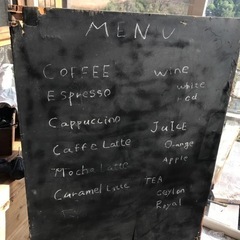 MENU
COFFEE
Espresso
Cappuccino
Caffe Latte
Mocha Latte
Caramel
wine
white
red
Juice
Orange
Apple
TEA
Ceylon
Royal